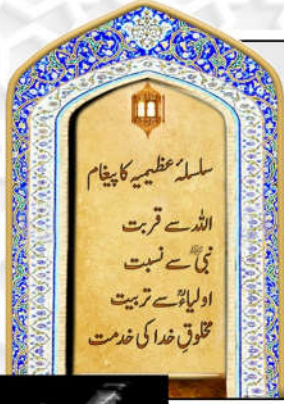 سلسلۂ عظیمیہ کا پیغام
اللہ سے قربت
نبیﷺ سے نسبت
اولیاءؒ سے تربیت
مخلوقِ خدا کی خدمت